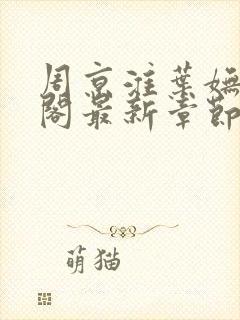 周京淮葉嫵
閣最新章節
萌猫